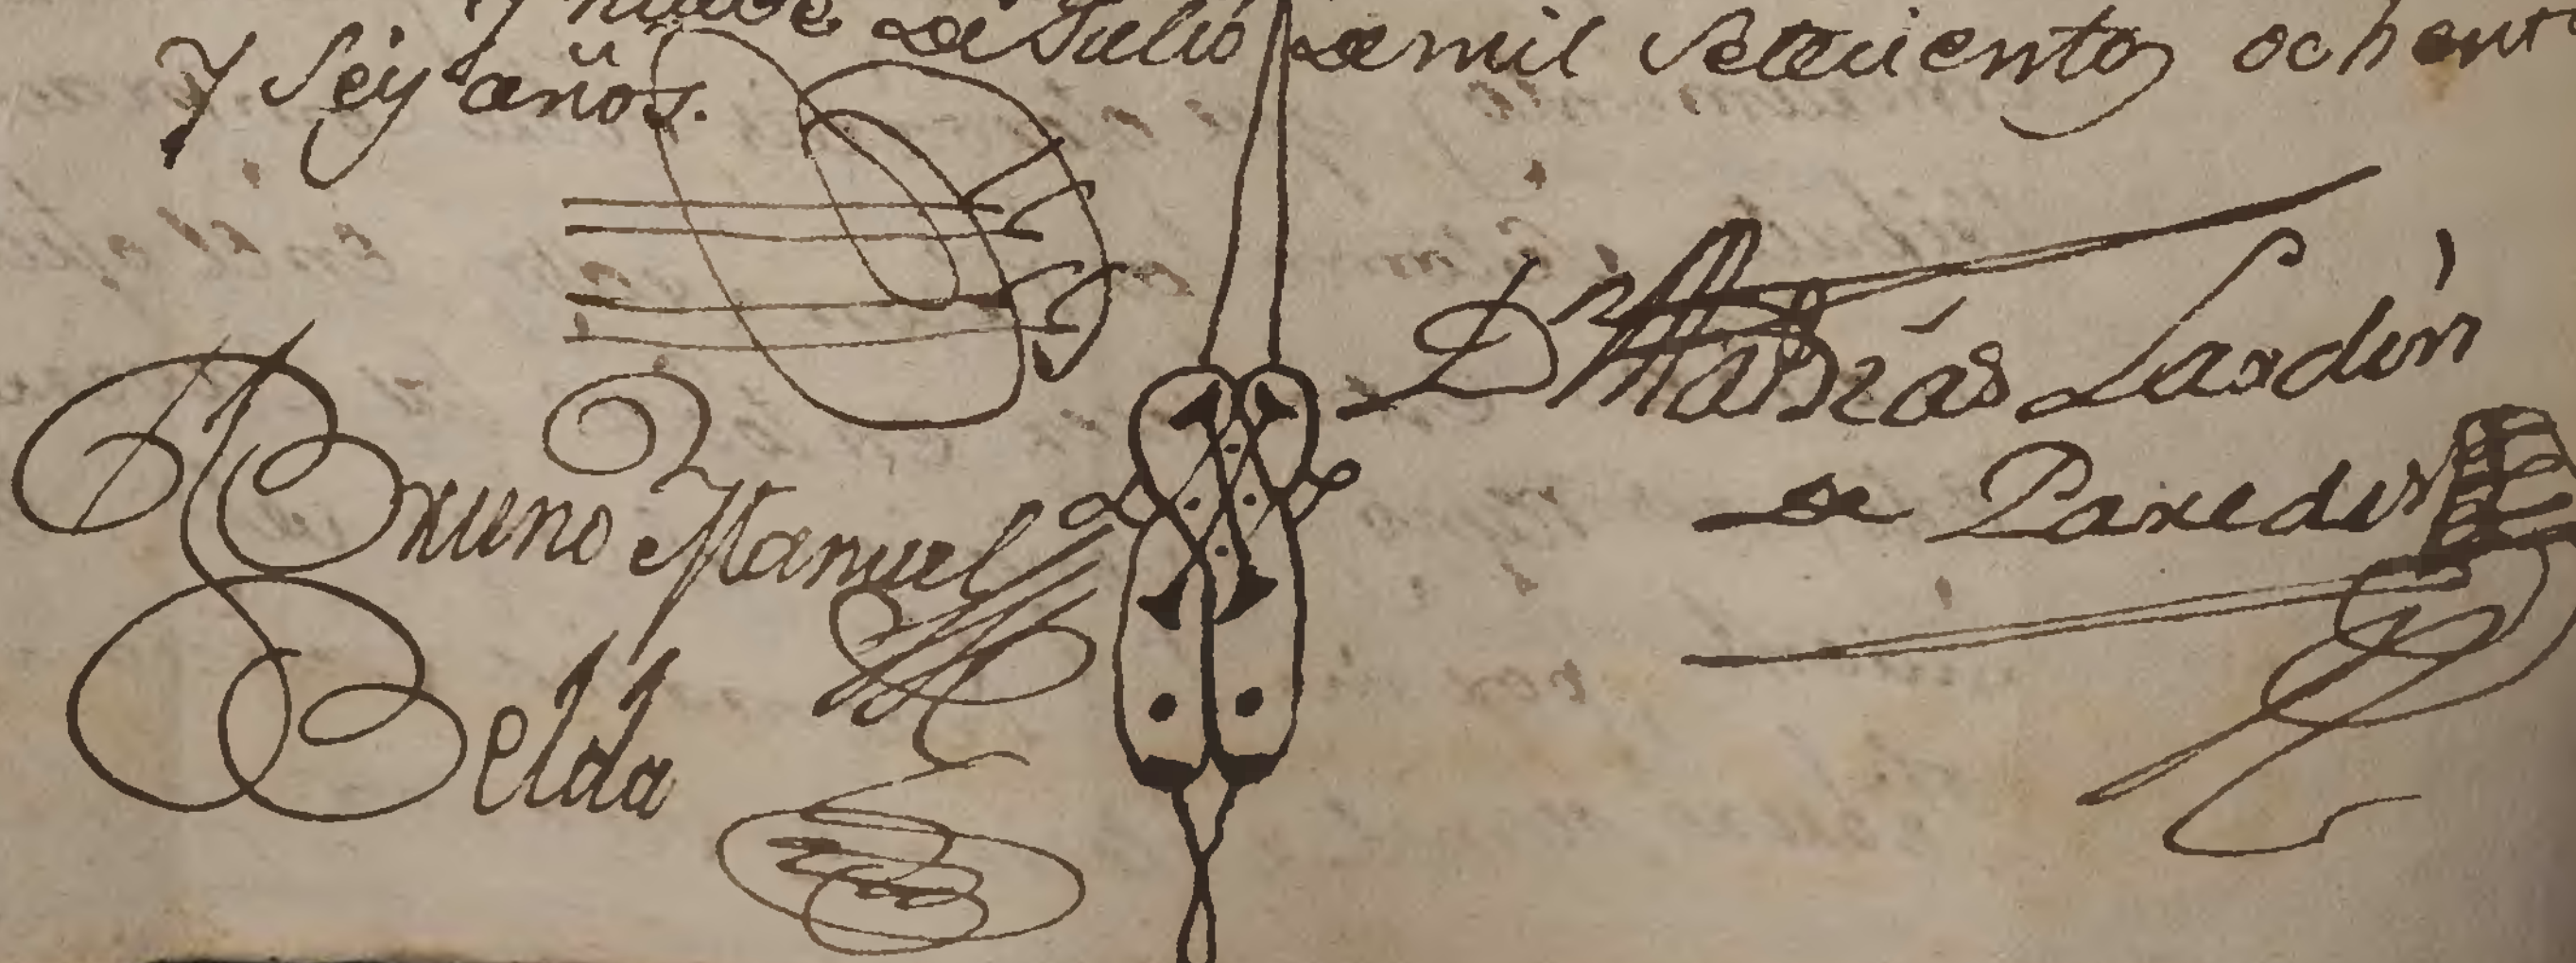 y nueve de Julio de mil Setecientos ochenta
y Seys años.
Bruno Manuel
Belda
Dn Mathías Lardín
de Paredes